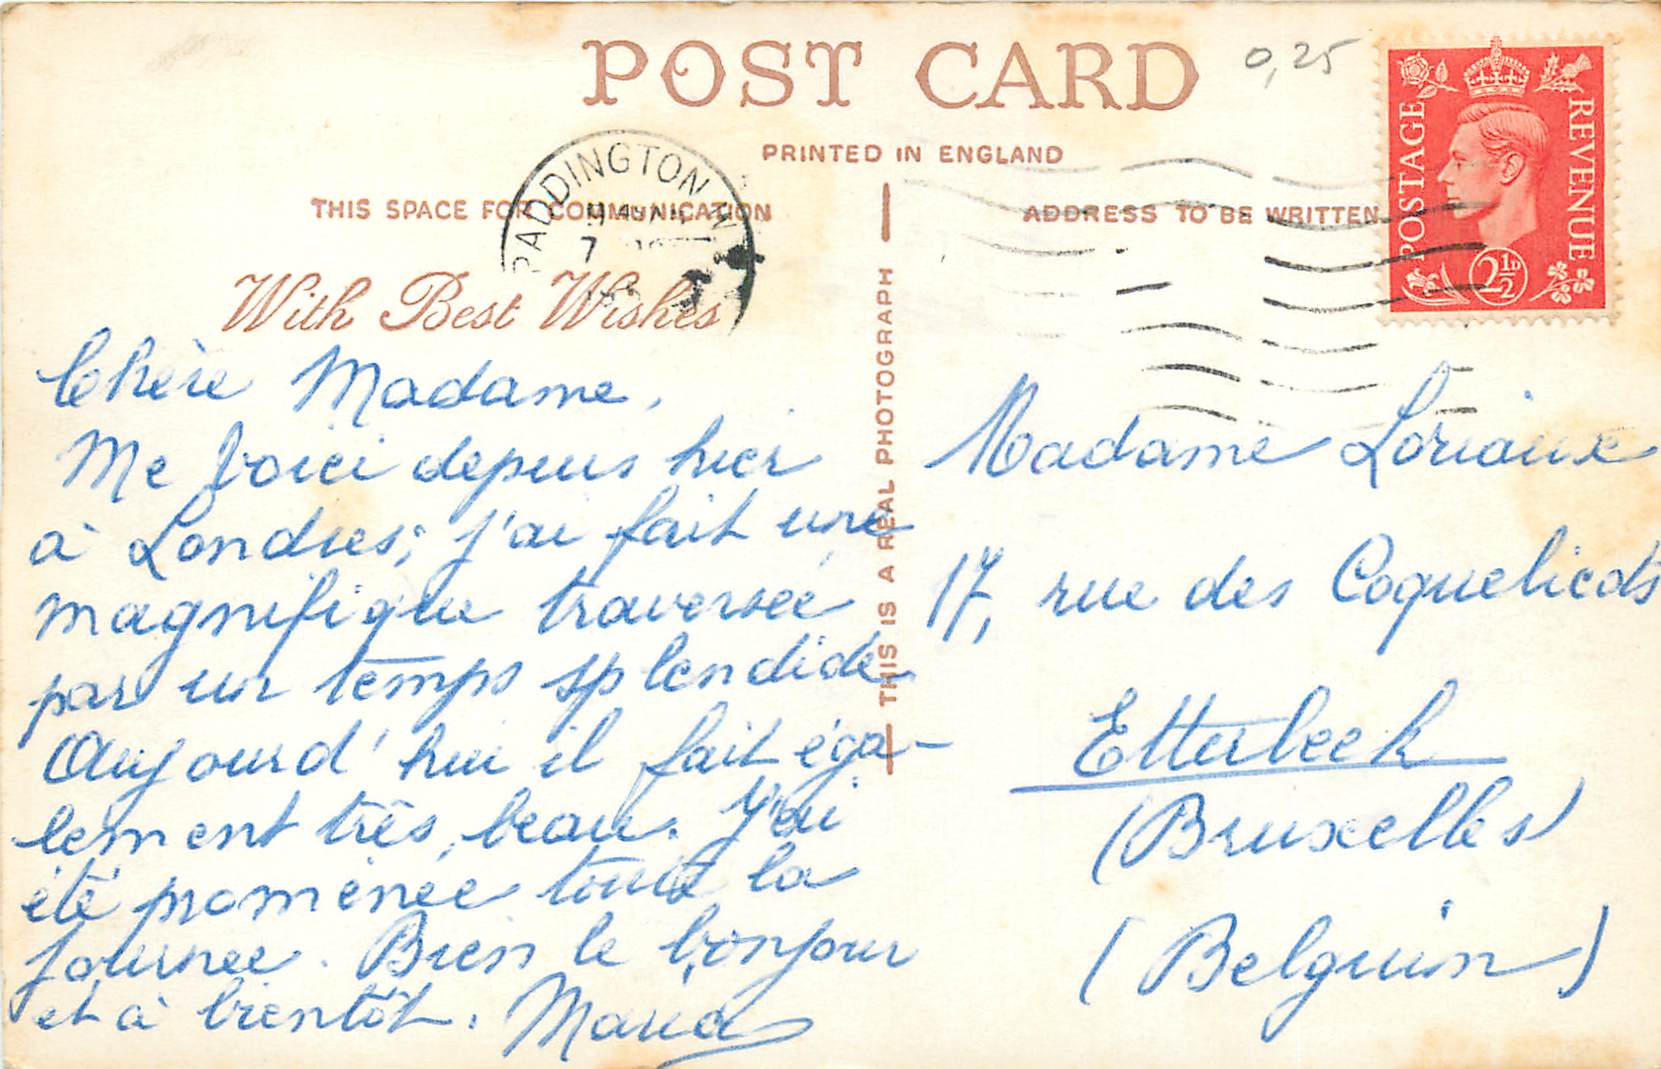 POST CARD
0,25
PRINTED IN ENGLAND
THIS SPACE FOR COMMUNICATION
ADDRESS TO BE WRITTEN
PADDINGTON
7
POSTAGE
REVENUE
2½D
With Best Wishes
THIS IS A REAL PHOTOGRAPH
Chère Madame,
Me voici depuis hier
à Londres; j'ai fait une
magnifique traversée
par un temps splendide
Aujourd'hui il fait éga-
lement très beau. J'ai
été promenée toute la
journée. Bien le bonjour
et à bientôt. Maria
Madame Loriaux
17, rue des Coquelicots
Etterbeek
(Bruxelles)
(Belguim)